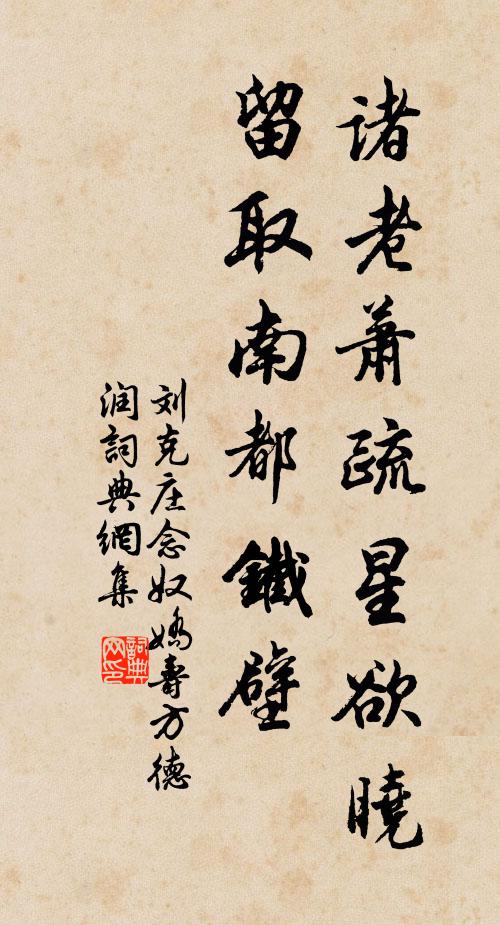 諸老蕭疏星欲曉
留取南都鐵壁
刘克庄念奴嬌壽方德
润詞典網集
詞典网印